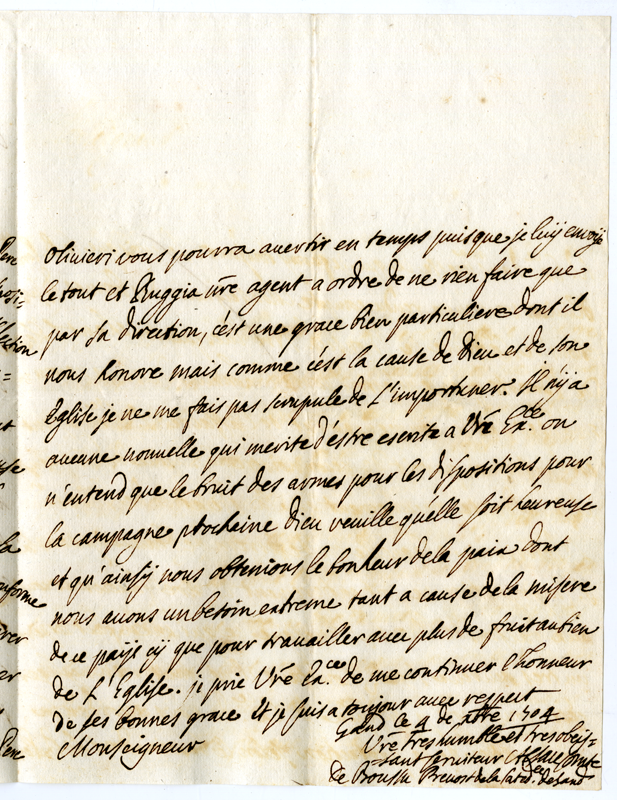 olivieri vous pourra avertir en temps puisque je luij envoije
le tout et Ruggia nre agent a ordre de ne rien faire que
par sa direction, c'est une grace bien particuliere dont il
nous honore mais comme c'est la cause de Dieu et de son
Eglise je ne me fais pas scrupule de L'importuner. Il n'ij a
aucune nouvelle qui merite d'éstre escrite a Vre Exce. on
n'entend que le bruit des armes pour les dispositions pour
la campagne prochaine Dieu veuille qu'élle soit heureuse
et qu'ainsij nous obtenions le bonheur de la paix dont
nous avons un besoin extreme tant a cause de la misere
de ce paijs cij que pour travailler avec plus de fruit au bien
de L'Eglise. je prie Vre Exce. de me continuer l'honneur
de ses bonnes grace et je suis a toujour avec respect
Monseigneur
Gand Ce 4 de 1704
Vre tres humble et tres obeis=
sant serviteur
de Boussu Prevost de la Cated. de Gand
Pen
la
nforme
Pene